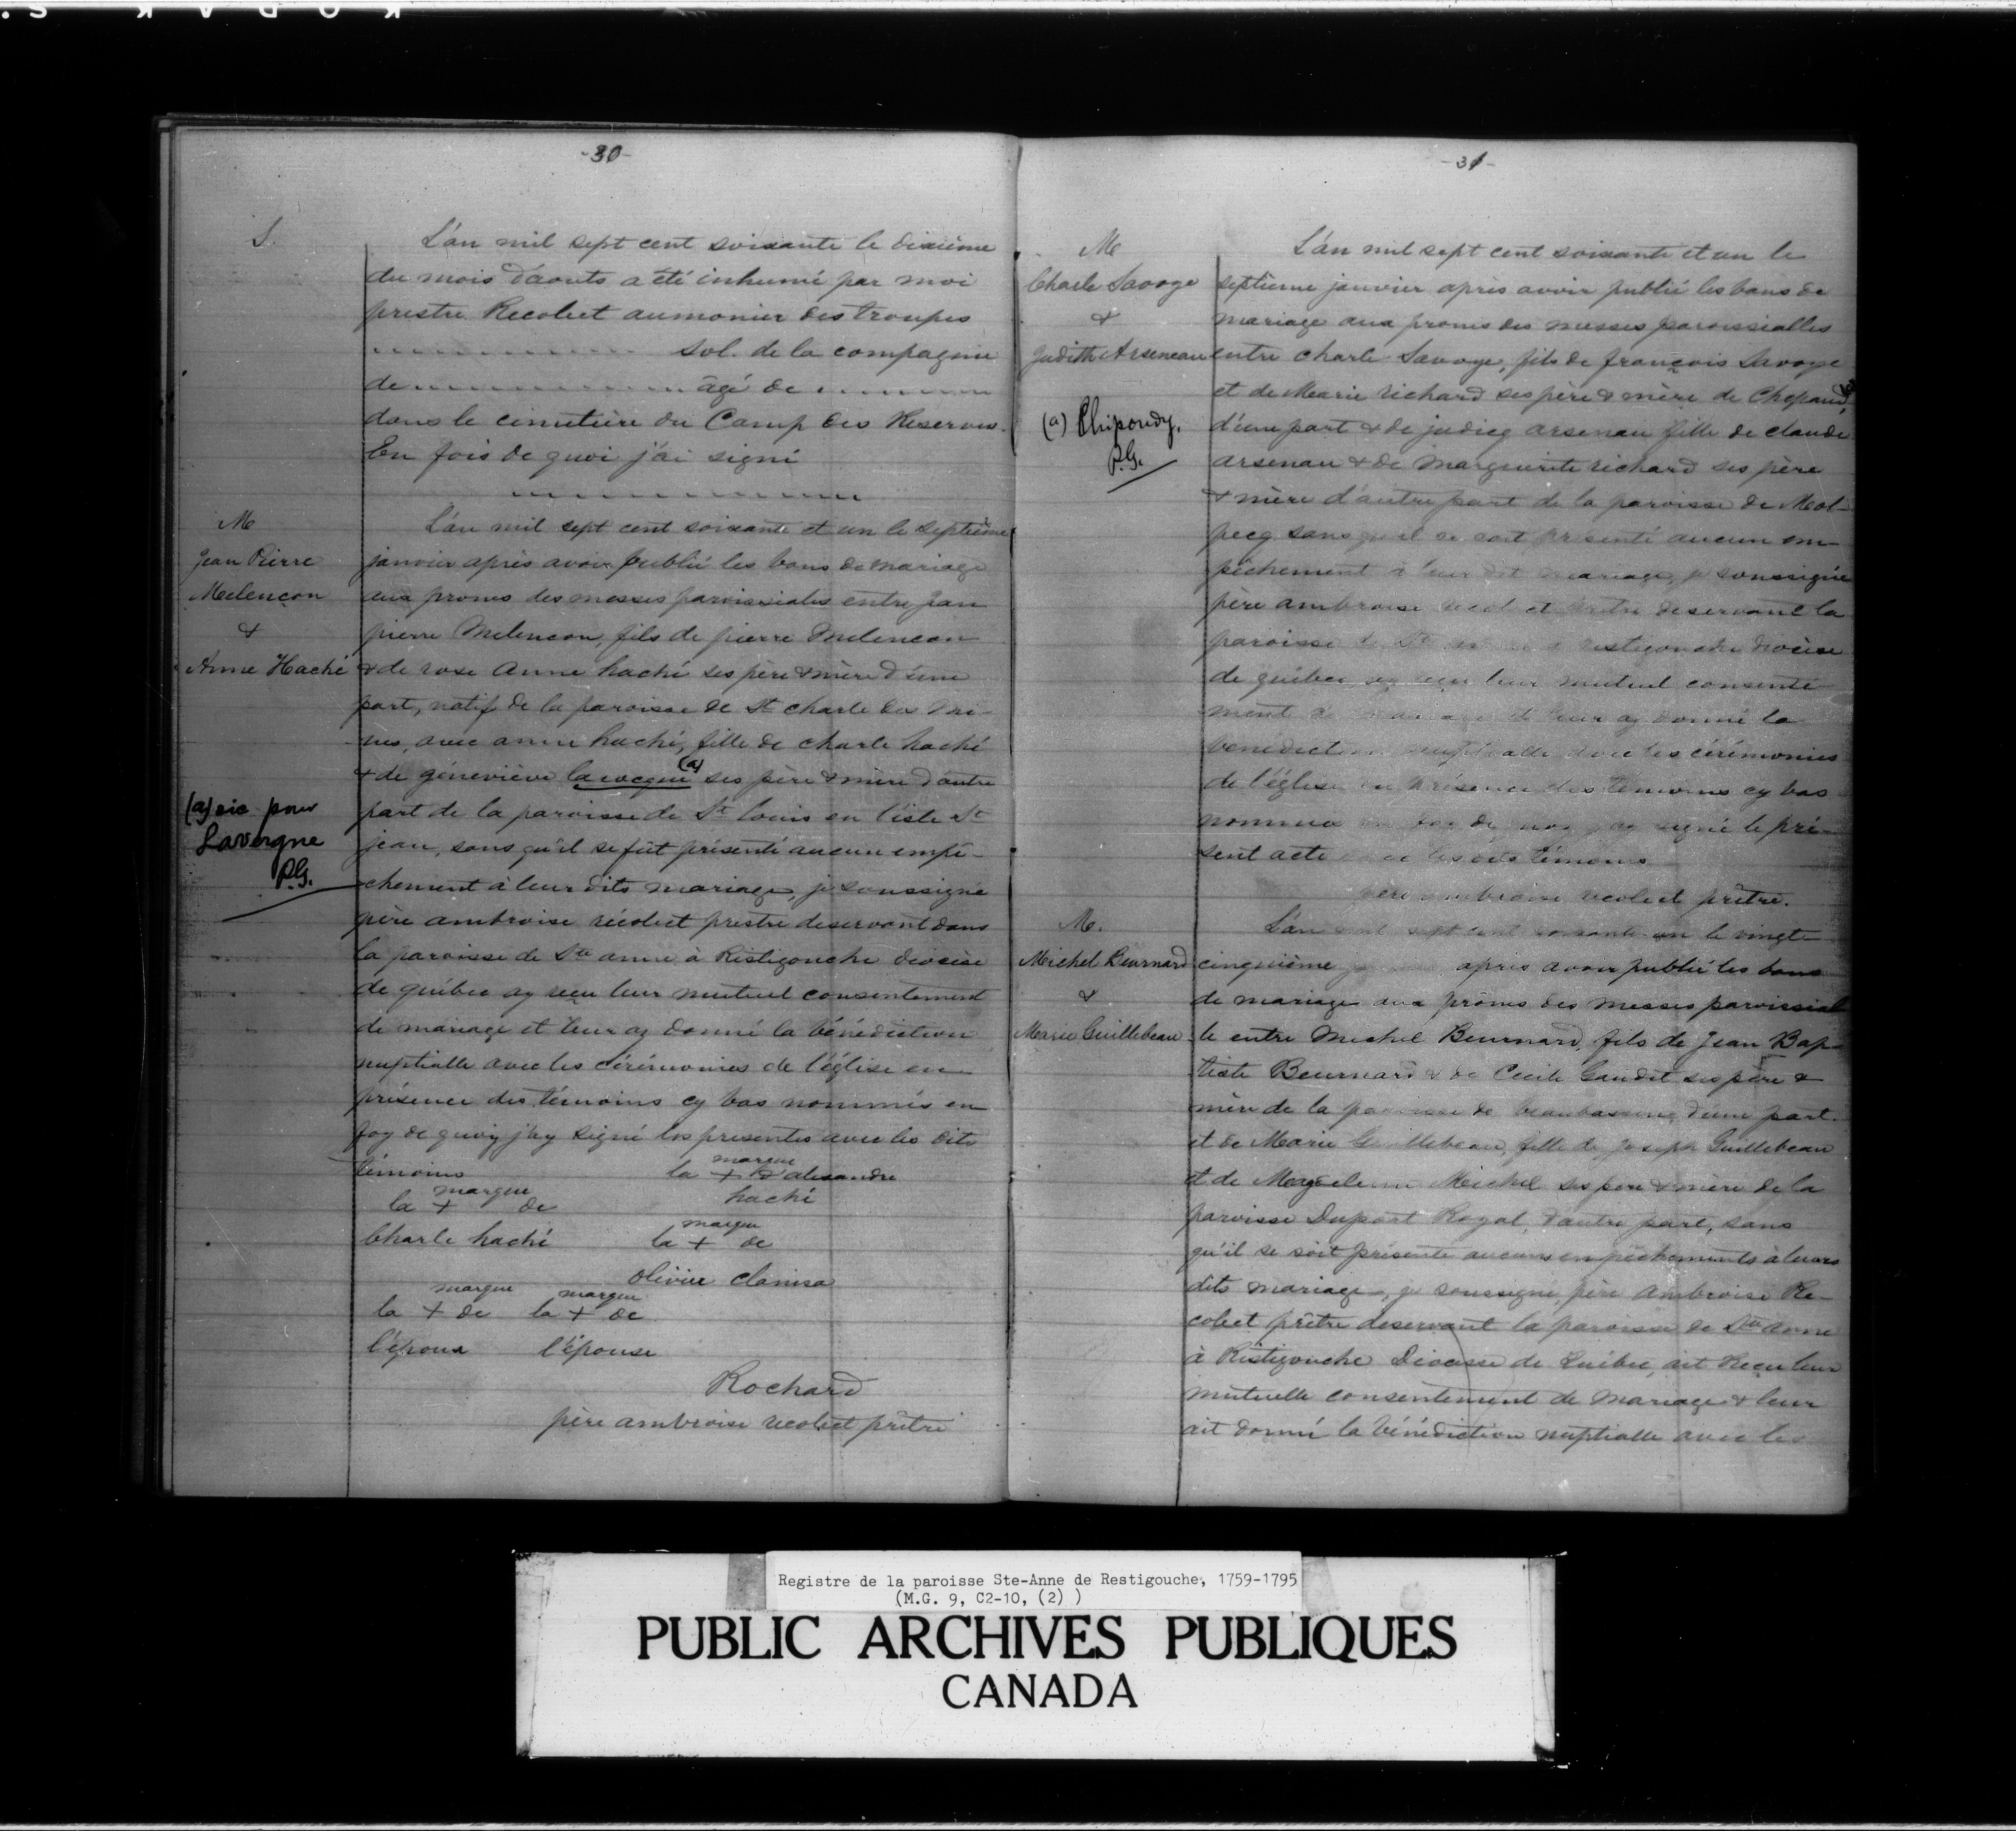 -30-
S.
L'an mil sept cent soixante le dixième
du mois d'aouts a été inhumé par moi
prestre Recolect aumonier des troupes
sol. de la compagnie
de âgé de
dans le cimetière du Camp des Reserves.
En fois de quoi j'ai signé
M
Jean Pierre
Melençon
&
Anne Haché
L'an mil sept cent soixante et un le septième
janvier après avoir publié les bans de mariage
aux prones des messes paroissiales entre jean
pierre Melencon, fils de pierre Melencon
& de rose Anne haché ses père & mère d'une
part, natif de la paroisse de St charle des Mi-
nes, avec anne haché, fille de charle haché
& de géneviève lavocque (a) ses père & mère d'autre
part de la paroisse de St louis en l'isle St
jean, sans qu'il se fut présenté aucun empê-
chement à leur dits mariage, je soussigné
père ambroise récolect prestre deservant dans
la paroisse de Ste anne à Ristigouche diocèse
de québec ay reçu leur mutuel consentement
de mariage et leur ay donné la bénédiction
nuptialle avec les cérémonies de l'église en
présence des témoins cy bas nommés en
foy de quoiy j'ay signé les presentes avec les dits
témoins
(a) sic pour
Lavergne
P.G.
la marque + d'alexandre
haché
la marque + de
Charle haché
la marque + de
olivier
la marque + de la marque + de
l'époux l'épouse
Rochard
père ambroise recolect prêtre
-31-
M
Charle Savoye
&
Judith Arseneau
(a) Chipoudy.
P.G.
L'an mil sept cent soixante et un le
septième janvier après avoir publié les bans de
mariage aux prones des messes paroissialles
entre charle Savoye, fils de françois Savoye
et de Marie richard ses père & mère de (a)
d'une part & de judicq arsenau fille de claude
arsenau & de marguerite richard ses père
& mère d'autre part de la paroisse de Mal-
pecq sans qu'il se soit présenté aucun em-
pêchement à leur dit mariage, je soussigné
père ambroise recolect prêtre deservant la
paroisse de Ste restigouche diocèse
de québec, ay reçu leur mutuel consente-
ment de mariage et leur ay donné la
bénédiction nuptialle avec les cérémonies
de l'église en présence des témoins cy bas
nommés en foy de quoy j'ay signé le pré-
sent acte avec les dits témoins
père ambroise recolect prêtre.
M.
Michel Beurnard
&
Marie Guillebeau
L'an mil sept cent soixante un le vingt-
cinquième après avoir publié les bans
de mariage aux prônes des messes paroissial
le entre Michel Beurnard, fils de Jean Bap-
tiste Beurnard & de Cecile Gaudet ses père &
mère de la paroisse de beaubassin, d'une part.
et de Marie Guillebeau, fille de joseph Guillebeau
et de Magdeleine Michel ses père & mère de la
paroisse Duport Royal, d'autre part, sans
qu'il se soit présenté aucuns empêchements à leurs
dits mariage, je soussigné père Ambroise Re-
colect prêtre deservant la paroisse de Ste Anne
à Ristigouche Diocesse de Québec, ait Reçu leur
mutuelle consentement de Mariage & leur
ait donné la bénédiction nuptialle avec les
Registre de la paroisse Ste-Anne de Restigouche, 1759-1795
(M.G. 9, C2-10, (2) )
PUBLIC ARCHIVES PUBLIQUES
CANADA